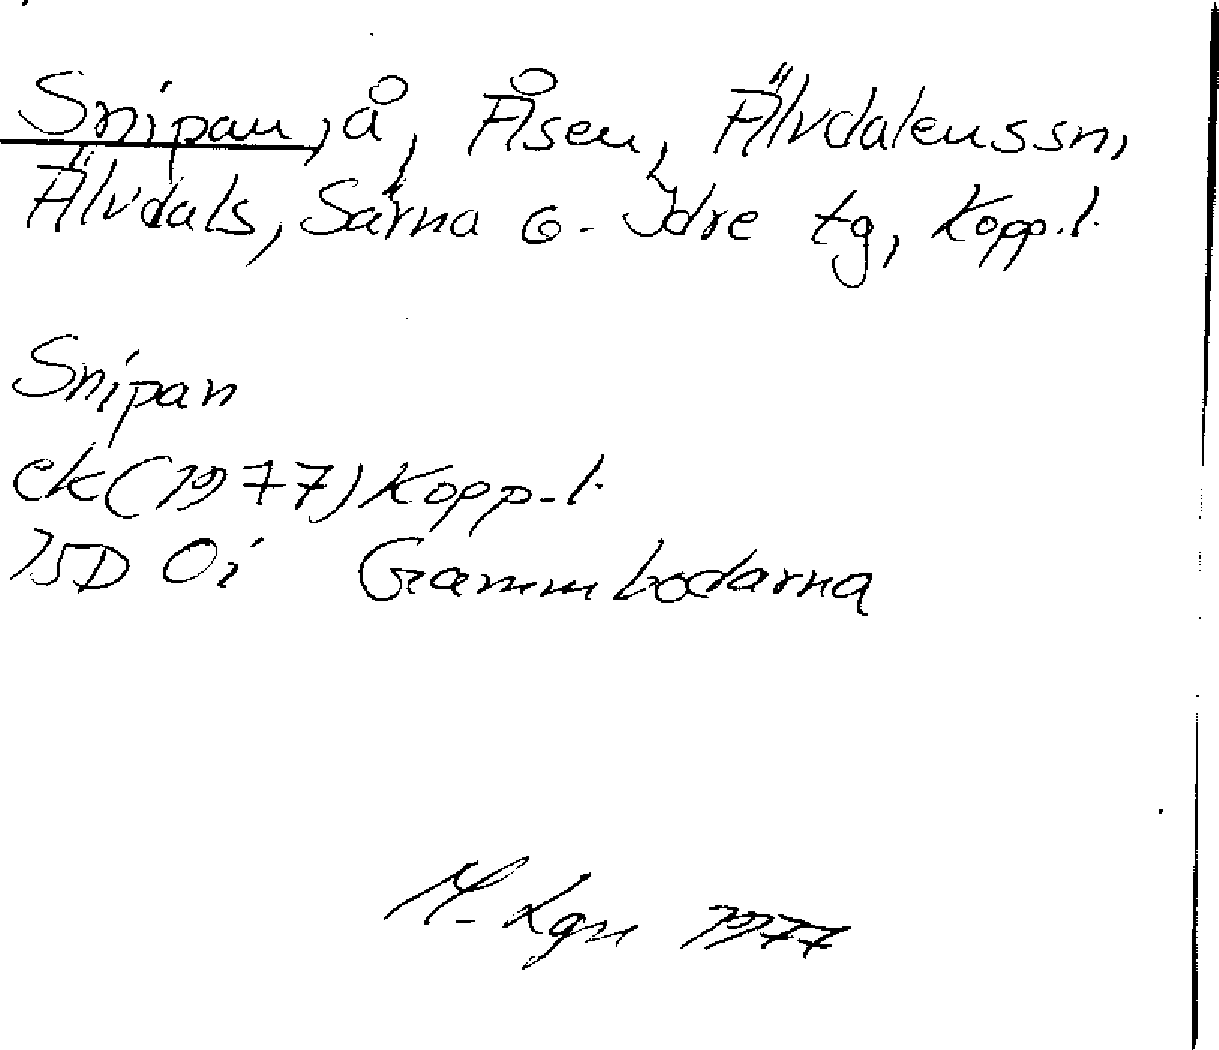 Snipan, å, Åsen, Älvdalens sn,
Älvdals, Särna o. Idre tg, Kopp.l.
Snipan
ek (1977) Kopp.l.
15D 0i Grammbodarna
M. Lgn 1977